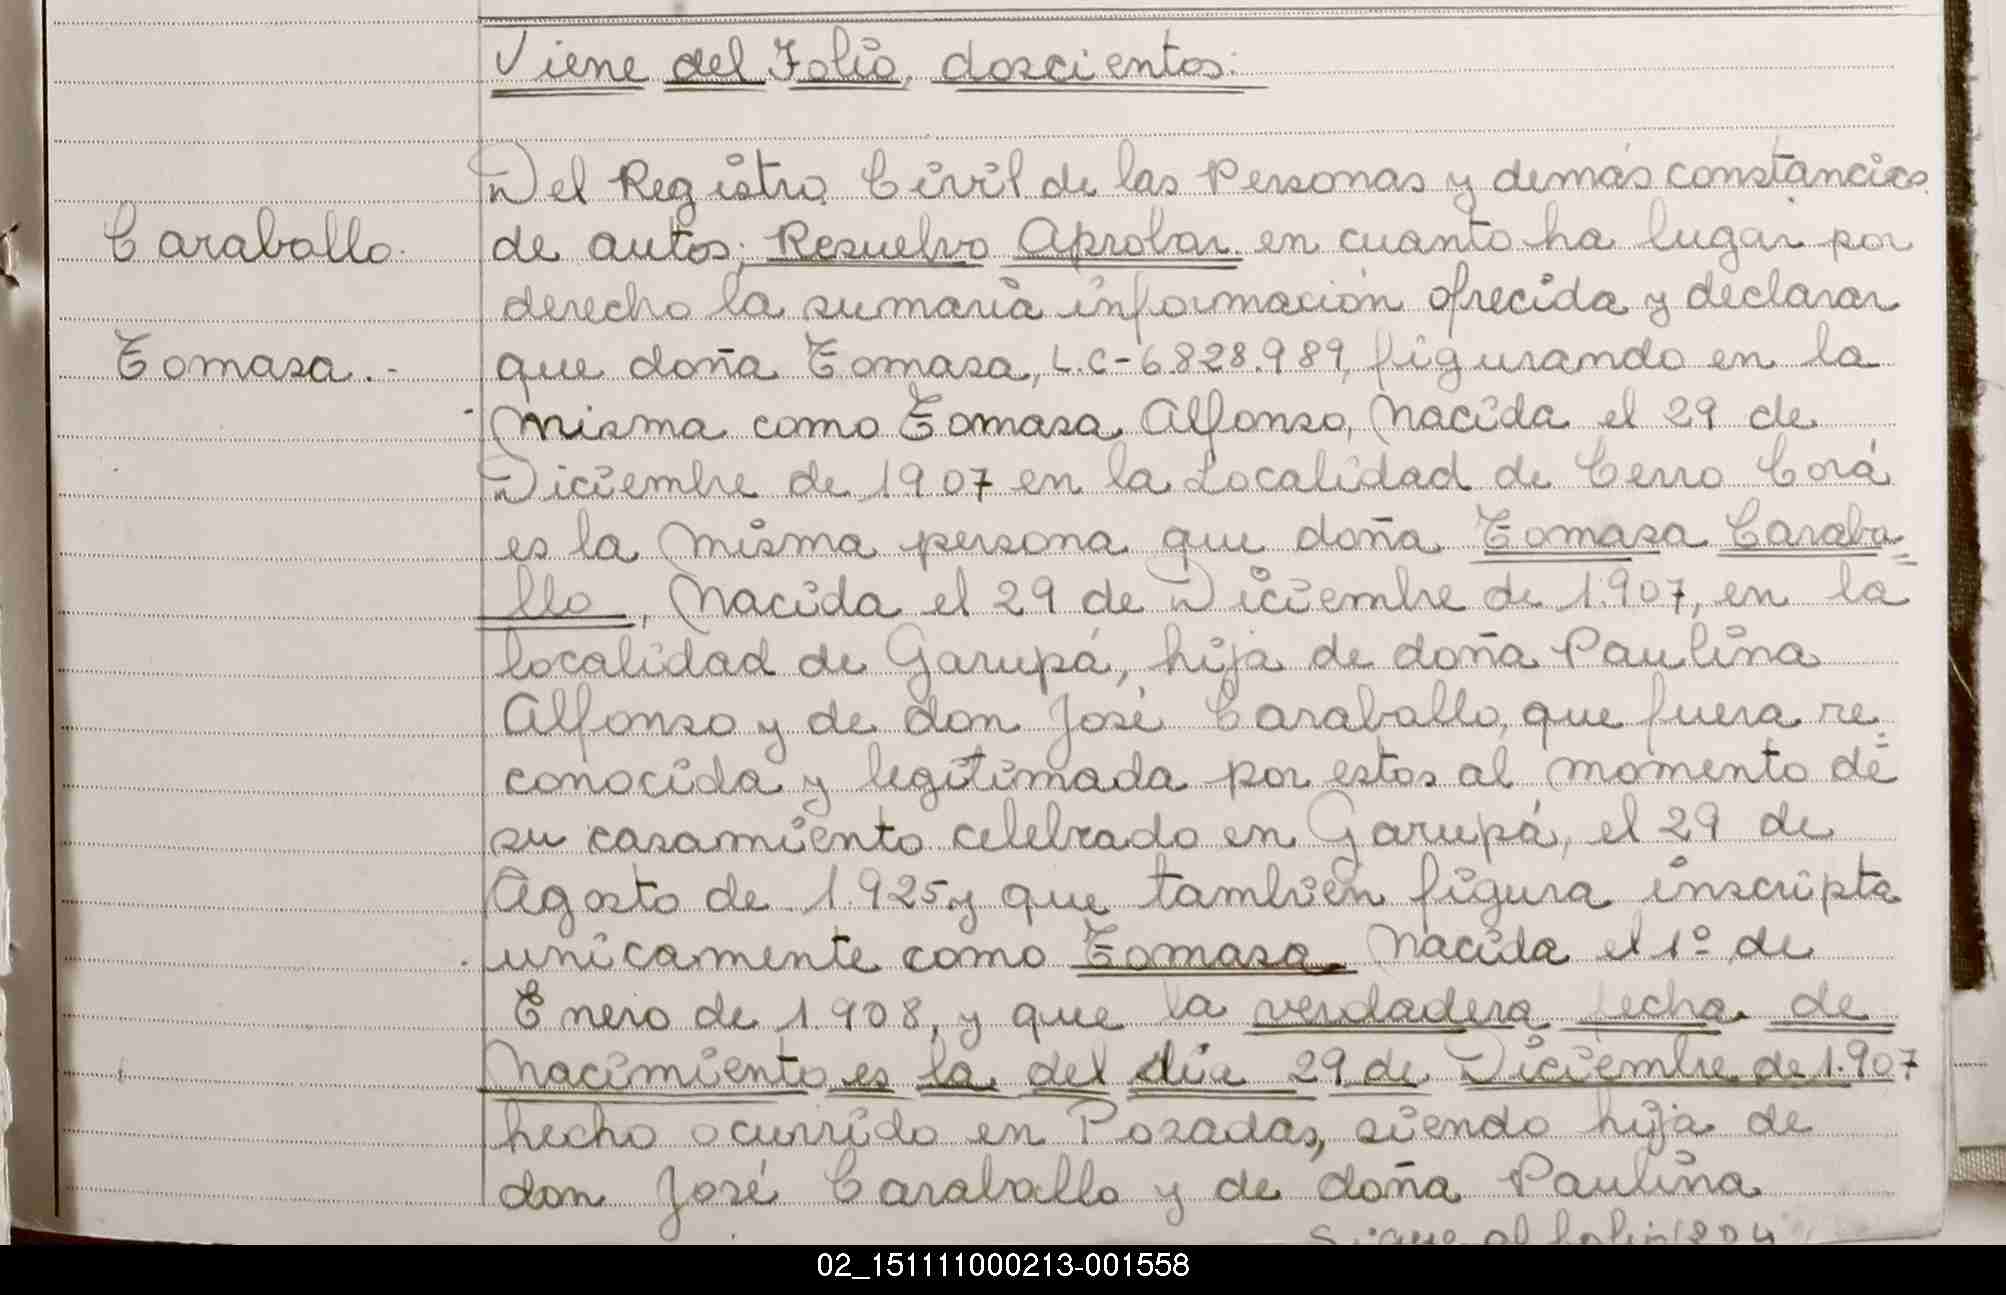 Viene del Folio doscientos.
Del Registro Civil de las Personas y demás constancias
Caraballo. de autos; Resuelvo Aprobar en cuanto ha lugar por
derecho la sumaria información ofrecida y declarar
Tomasa.- que doña Tomasa, L.C-6.828.989, figurando en la
misma como Tomasa Alfonso, Nacida el 29 de
Diciembre de 1907 en la Localidad de Cerro Corá
es la misma persona que doña Tomasa Caraba=
llo, Nacida el 29 de Diciembre de 1.907, en la
localidad de Garupá, hija de doña Paulina
Alfonso y de don José Caraballo, que fuera re=
conocida y legitimada por estos al momento de
su casamiento celebrado en Garupá, el 29 de
Agosto de 1.925 y que tambien figura inscripta
unicamente como Tomasa Nacida el 1º de
Enero de 1.908, y que la verdadera fecha de
Nacimiento es la del dia 29 de Diciembre de 1.907
hecho ocurrido en Posadas, siendo hija de
don José Caraballo y de doña Paulina
Sigue al folio
02_151111000213-001558